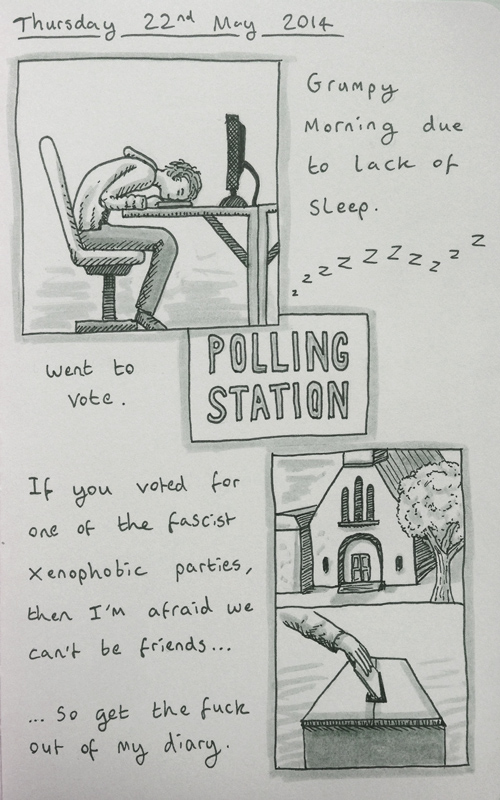 Thursday 22nd May 2014
Grumpy
Morning due
to lack of
sleep.
z z z z z z z z z z
went to
vote.
POLLING
STATION
If you voted for
one of the fascist
xenophobic parties,
then I'm afraid we
can't be friends...
... So get the fuck
out of my diary.